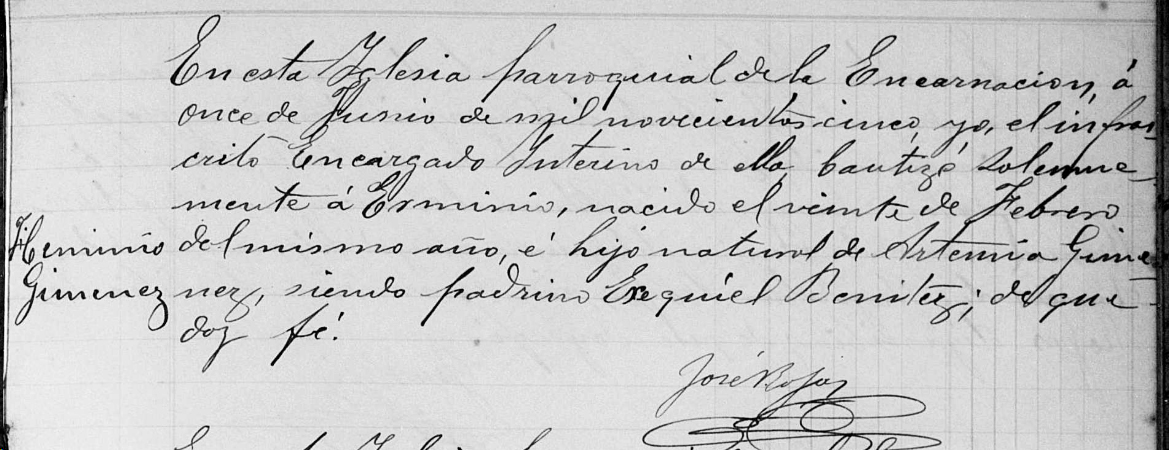 En esta Iglesia parroquial de la Encarnacion, á
once de Junio de mil novecientos cinco, yo, el infras-
crito Encargado Interino de ella, bautizé solemne-
mente á Erminio, nacido el veinte de Febrero
del mismo año, é hijo natural de Artemia Gime-
nez, siendo padrino Exequiel Benitez; de que
doy fé.
Herminio
Gimenez
José Rojas
En esta Iglesia